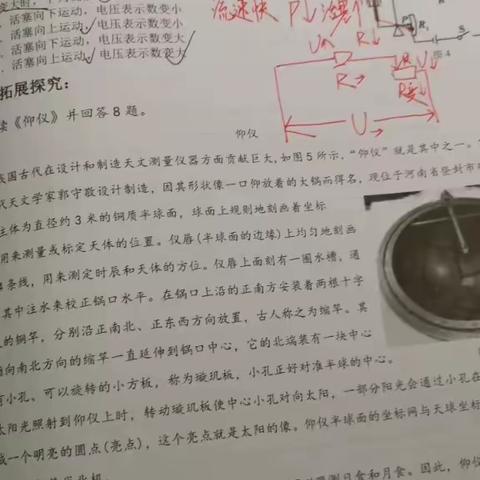 活塞向下运动，电压表示数变小
活塞向上运动，电压表示数变小
活塞向下运动，电压表示数变大
活塞向上运动，电压表示数变大
流速快 P↓
U R↓
R→
U→
R1
S
图4
拓展探究：
《仰仪》并回答8题。
仰仪
国古代在设计和制造天文测量仪器方面贡献巨大，如图5所示，“仰仪”就是其中之一。
天文学家郭守敬设计制造，因其形状像一口仰放着的大锅而得名，现位于河南省登封市
主体为直径约3米的铜质半球面，球面上规则地刻画着坐标
用来测量或标定天体的位置。仪唇（半球面的边缘）上均匀地刻画
条线，用来测定时辰和天体的方位。仪唇上面刻有一圈水槽，通
其中注水来校正锅口水平。在锅口上沿的正南方安装着两根十字
的铜竿，分别沿正南北、正东西方向放置，古人称之为缩竿。其
向南北方向的缩竿一直延伸到锅口中心，它的北端装有一块中心
有小孔、可以旋转的小方板，称为璇玑板，小孔正好对准半球的中心。
太阳光照射到仰仪上时，转动璇玑板使中心小孔对向太阳，一部分阳光会通过小孔在
成一个明亮的圆点（亮点），这个亮点就是太阳的像。仰仪半球面的坐标网与天球坐标
测日食和月食。因此，仰仪